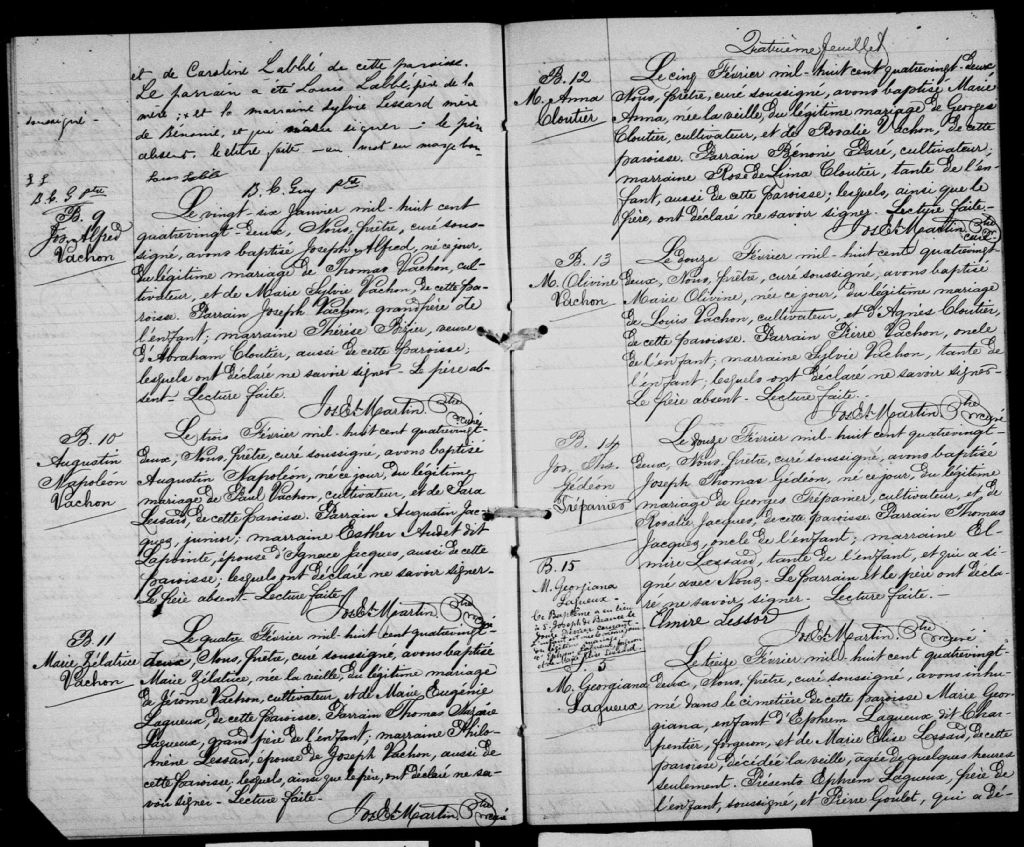 et de Caroline Labbé de cette paroisse.
Le parrain a été Louis Labbé, père de la
mère; et la marraine Sylvie Lessard mère
de Bénonie, et qui signer - le père
soussigné
absent. lecture faite - un mot en marge bon
Louis Labbé
B. C. Guy Ptre
B. C. G Ptre
B. 9
Jos. Alfred
Vachon
Le vingt-six Janvier mil-huit cent
quatrevingt-deux, Nous, prêtre, curé sous-
signé, avons baptisé Joseph Alfred, né ce jour,
du légitime mariage de Thomas Vachon, cul-
tivateur, et de Marie Sylvie Vachon de cette pa-
roisse. Parrain Joseph Vachon, grandpère de
l'enfant; marraine Thérèse Bizier, veuve
d'Abraham Cloutier, aussi de cette paroisse;
lesquels ont déclaré ne savoir signer - Le père ab-
sent - Lecture faite.
Jos. Et. Martin Ptre curé
B. 10
Augustin
Napoléon
Vachon
Le trois Février mil-huit cent quatrevingt-
deux, Nous, prêtre, curé soussigné, avons baptisé
Augustin Napoléon, né ce jour, du légitime
mariage de Paul Vachon, cultivateur, et de Sara
Lessard, de cette paroisse. Parrain Augustin Jac-
ques, junior; marraine Esther Audet dit
Lapointe, épouse d'Ignace Jacques, aussi de cette
paroisse; lesquels ont déclaré ne savoir signer -
Le père absent - Lecture faite
Jos. Et. Martin Ptre curé
B. 11
Marie Zélatrice
Vachon
Le quatre Février mil-huit cent quatrevingt-
deux, Nous, prêtre, curé soussigné, avons baptisé
Marie Zélatrice, née la veille, du légitime mariage
de Jérome Vachon, cultivateur, et de Marie Eugénie
Lagueux, de cette paroisse. Parrain Thomas
Lagueux, grand père de l'enfant; marraine Philo-
mène Lessard, épouse de Joseph Vachon, aussi de
cette paroisse; lesquels, ainsi que le père, ont déclaré ne sa-
voir signer - Lecture faite -
Jos. Et. Martin Ptre curé
Quatrième feuillet
B. 12
M. Anna
Cloutier
Le cinq Février mil-huit cent quatrevingt-deux
Nous, prêtre, curé soussigné, avons baptisé Marie
Anna, née la veille, du légitime mariage de Georges
Cloutier, cultivateur, et de Rosalie Vachon, de cette
paroisse. Parrain Bénoni Paré, cultivateur;
marraine Rose de Lima Cloutier, tante de l'en-
fant, aussi de cette paroisse; lesquels, ainsi que le
père, ont déclaré ne savoir signer. Lecture faite -
Jos. Et. Martin Ptre curé
B. 13
M. Olivine
Vachon
Le douze Février mil-huit cent quatrevingt-
deux, Nous, prêtre, curé soussigné, avons baptisé
Marie Olivine, née ce jour, du légitime mariage
de Louis Vachon, cultivateur, et d'Agnès Cloutier,
de cette paroisse. Parrain Pierre Vachon, oncle
de l'enfant, marraine Sylvie Vachon, tante de
l'enfant; lesquels ont déclaré ne savoir signer -
Le père absent - Lecture faite.
Jos. Et. Martin Ptre curé
B. 14
Jos. Ths.
Gédéon
Trépanier
Le douze Février mil-huit cent quatrevingt-
deux, Nous, prêtre, curé soussigné, avons baptisé
Joseph Thomas Gédéon, né ce jour, du légitime
mariage de Georges Trépanier, cultivateur, et de
Rosalie Jacques, de cette paroisse. Parrain Thomas
Jacques, oncle de l'enfant; marraine El-
mire Lessard, tante de l'enfant, et qui a si-
gné avec Nous - Le parrain et le père ont décla-
ré ne savoir signer. Lecture faite. -
Elmire Lessor
Jos. Et. Martin Ptre curé
B. 15
M. Georgiana
Lagueux -
Ce Baptême a eu lieu
à S. Joseph de Beauce le
douze Février courant -
S. 5
M. Georgiana
Lagueux
Le treize Février mil-huit cent quatrevingt-
deux, Nous, prêtre, curé soussigné, avons inhu-
mé dans le cimetière de cette paroisse Marie Geor-
giana, enfant d'Ephrem Lagueux dit Char-
pentier, forgeron, et de Marie Elise Lessard, de cette
paroisse, décédée la veille, agée de quelques heures
seulement. Présents Ephrem Lagueux, père de
l'enfant, soussigné, et Pierre Goulet, qui a dé-